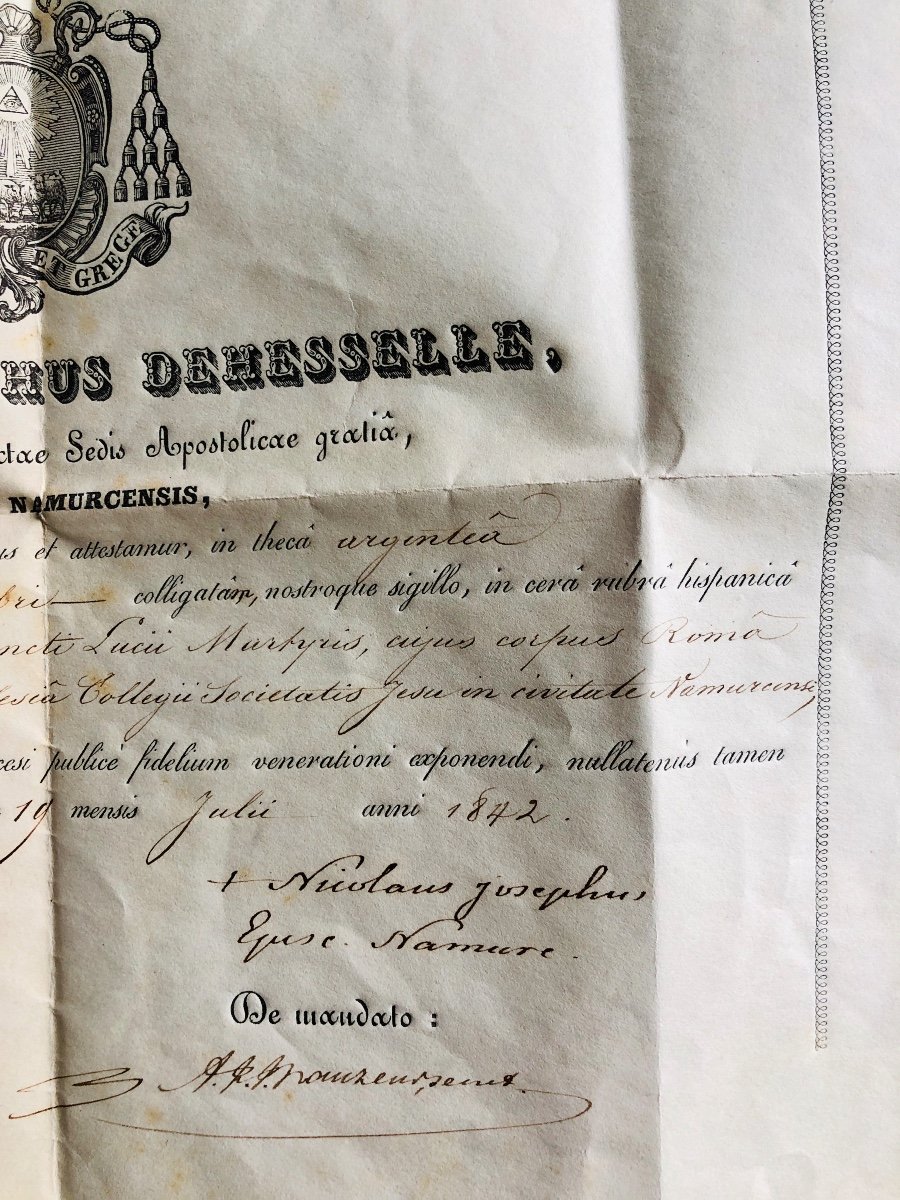 ET GREGE
HUS DEHESSELLE,
ctae Sedis Apostolicae gratiâ,
NAMURCENSIS,
us et attestamur, in thecâ argenteâ
bri colligatam, nostroque sigillo, in cerâ rubrâ hispanicâ
ncti Lucii Martyris, cujus corpus Româ
lesiâ Collegii Societatis Jesu in civitate Namurcensi,
cesi publicè fidelium venerationi exponendi, nullatenùs tamen
19 mensis Julii anni 1842.
+ Nicolaus Josephus
Episc. Namurc.
De mandato :